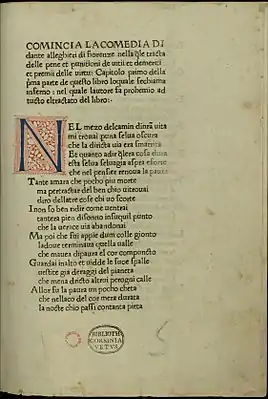 COMINCIA LA COMEDIA DI
dante alleghieri di fiorenze nella q̄le tracta
delle pene et punitioni de uitii et demeriti
et premii delle uirtu: Capitolo primo della
p̄ma parte de questo libro loquale sechiama
inferno: nel quale lautore fa prohemio ad
tucto eltractato del libro:
NEL mezo delcamin dinr̄a uita
mi trouai puna selua oscura
che la diricta uia era smarrita
Et quanto adir q̄lera cosa dura
esta selua seluagia aspra eforte
che nel pensier renoua la paura
Tante amara che pocho piu morte
ma pertractar del ben chio uitrouai
diro dellaltre cose chi uo scorte
I non so ben ridir come uentrai
tantera pien disonno insuquil punto
che la uerace uia abandonai
Ma poi che fui appie dum colle gionto
ladoue terminaua quella ualle
che mauea dipaura el cor compuncto
Guardai inalto et uidde le suoe spalle
uestite gia deraggi del pianeta
che mena dricto altrui perogni calle
Allor fu la paura un pocho cheta
che nellaco del cor mera durata
la nocte chio passi contanta pieta
BIBLIOTH
CORSINIA
VETVS